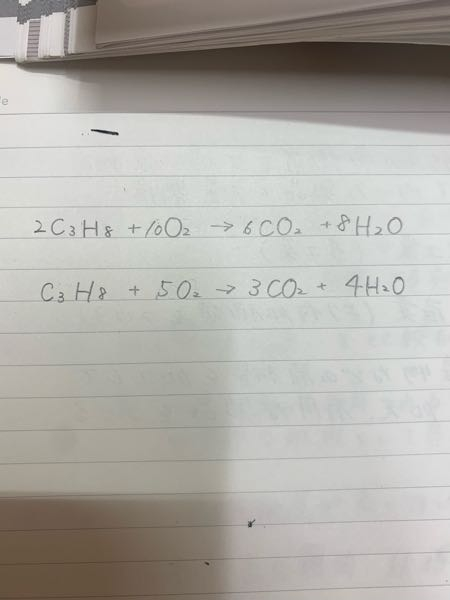 2C₃H₈ + 10O₂ → 6CO₂ + 8H₂O
C₃H₈ + 5O₂ → 3CO₂ + 4H₂O